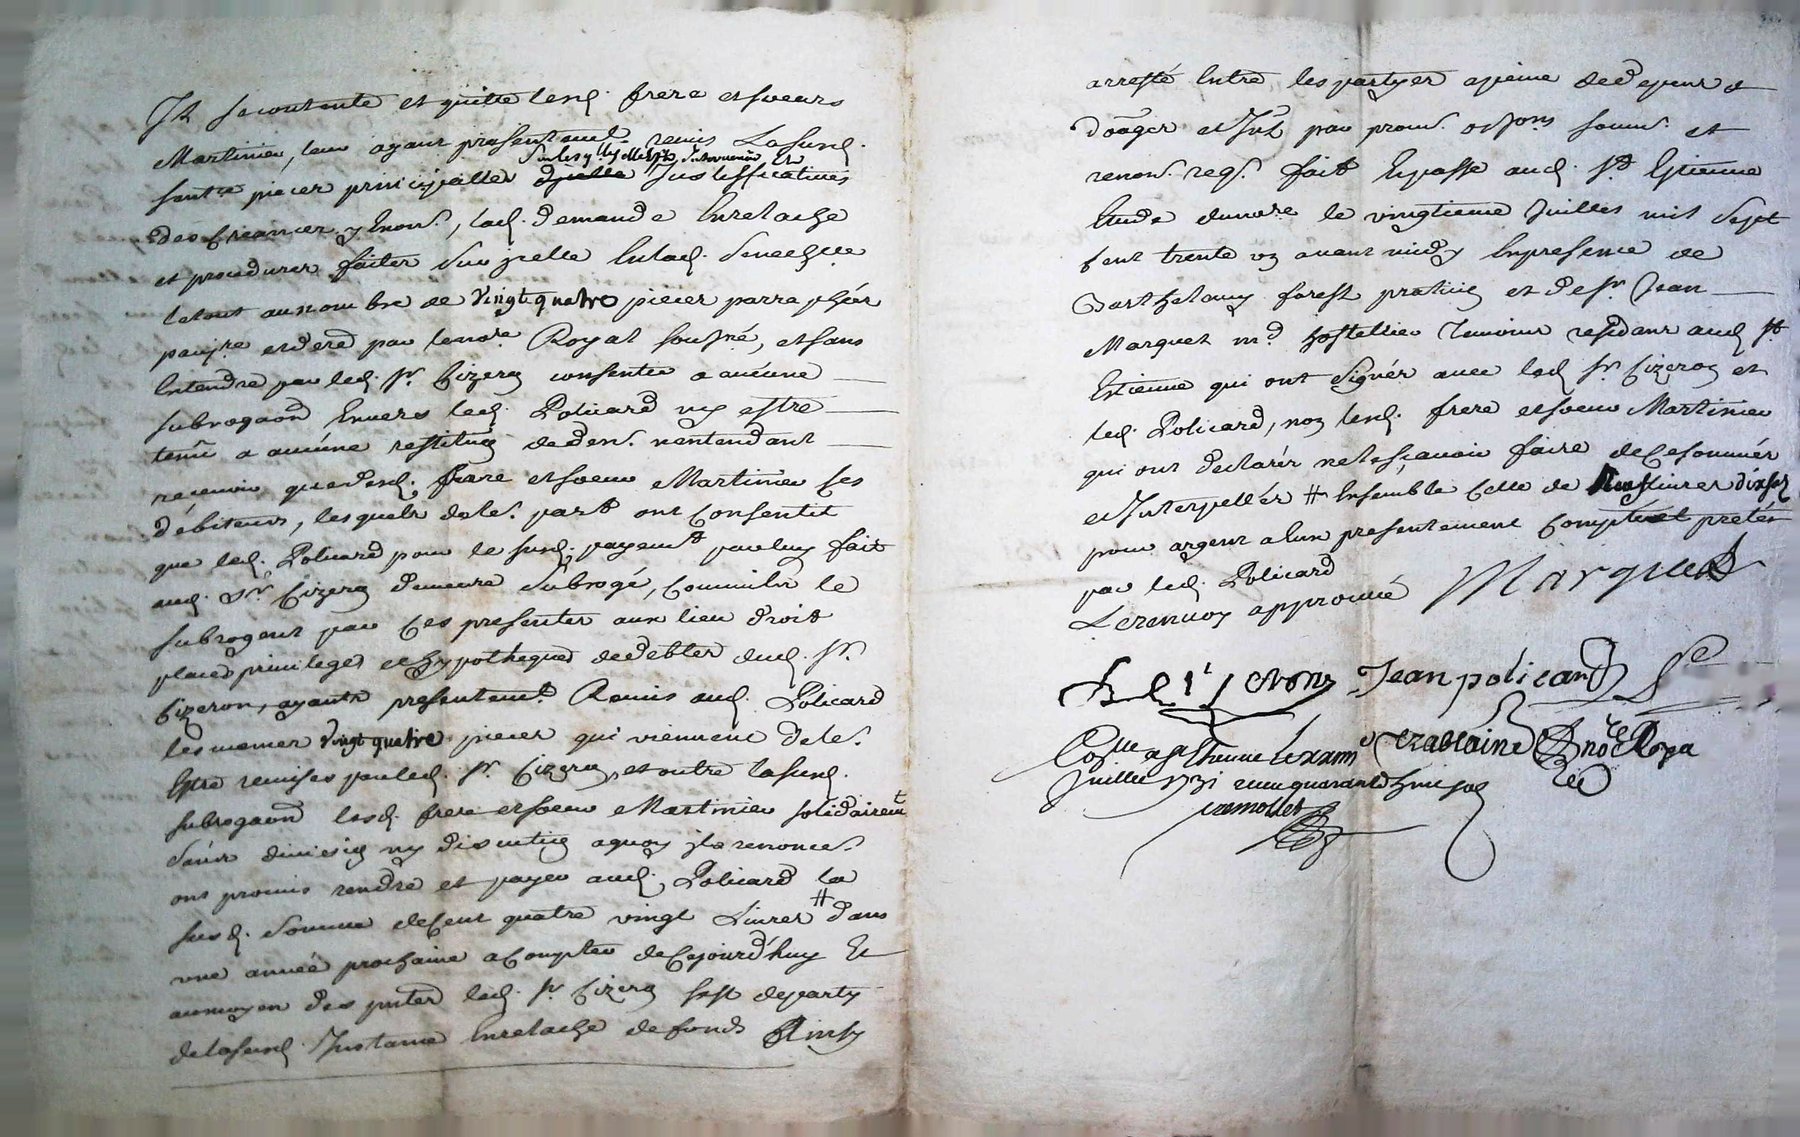 Il se contente et quitte lesd. frere et soeurs
Martinieu, leur ayant presentement remis Lasusd.
piecer principalles justifficatives
des creancer y enon. , lad. demande En relache
et procedurer faiter Sur jcelle En lad. Senechlle
le tout au nombre de vingt quatre piecer parraphéer
et de red par le no.re Royal sousné, et sans
Entendre par led. sr. Cizeron consentir a aucune
subrogaon Envers led. Policard ny estre
tenu a aucune restituon de den. nentendant
recevoir que desd. frere et soeur Martinieu ses
debiteurs, lesquels de le. part ont Consentit
que led. Policard pour le susd. payemt. par luy fait
aud. sr. Cizeron demeure subrogé, comm' le
subrogent par ces presenter aux lieu droit
place privileges et hypotheques de debtes dud. sr.
Cizeron, ayant presentemt. Remis aud. Policard
les memes vingt quatre piecer qui viennent de le.
Estre remises par led. sr. Cizeron, et outre lasusd.
subrogaon lesd. frere et soeur Martinieu solidairemt
sans division ny discution a quoy jls renoncet.
ont promis rendre et payer aud. Policard la
susd. somme de Cent quatre vingt Livrer # dans
une année prochaine a Compter de Cejourd'huy Et
au moyen des pnter led. sr Cizeron sest departy
de lasusd. Instance En relache de fonds Ainsy
arresté Entre les partyer a peine de depens
domager et Jnt par prom. et Jons soum. et
renon. req. fait Et passe aud. st Etienne
Etude du no.re le vingtieme Juillet mil Sept
Cent trente un avant midy En presence de
Barthelemy forest praticien et de sr. Jean
Marquet md. hostellier temoins residant aud. st
Etienne qui ont signér avec led. sr Cizeron et
led. Policard, non lesd. frere et soeur Martinieu
qui ont declarér ne le scavoir faire de Ce sommér
et Interpellér # Ensemble Celle de livrer dix sols
pour argent a Eux presentement Compté et pretér
par led. Policard
Le renvoy approuvé Marquet
Jean policard
Collé a st Etienne le
Juillet 1731 quarante huit sols